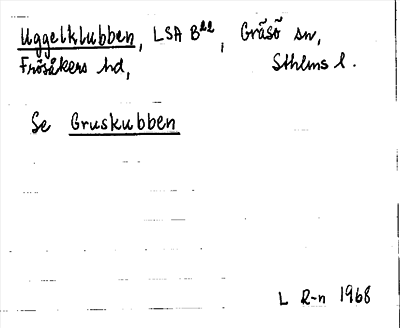 Uggelklubben, LSA Bˡˡ, Gräsö sn,
Frösåkers hd, Sthlms l.
Se Gruskubben
L R-n 1968